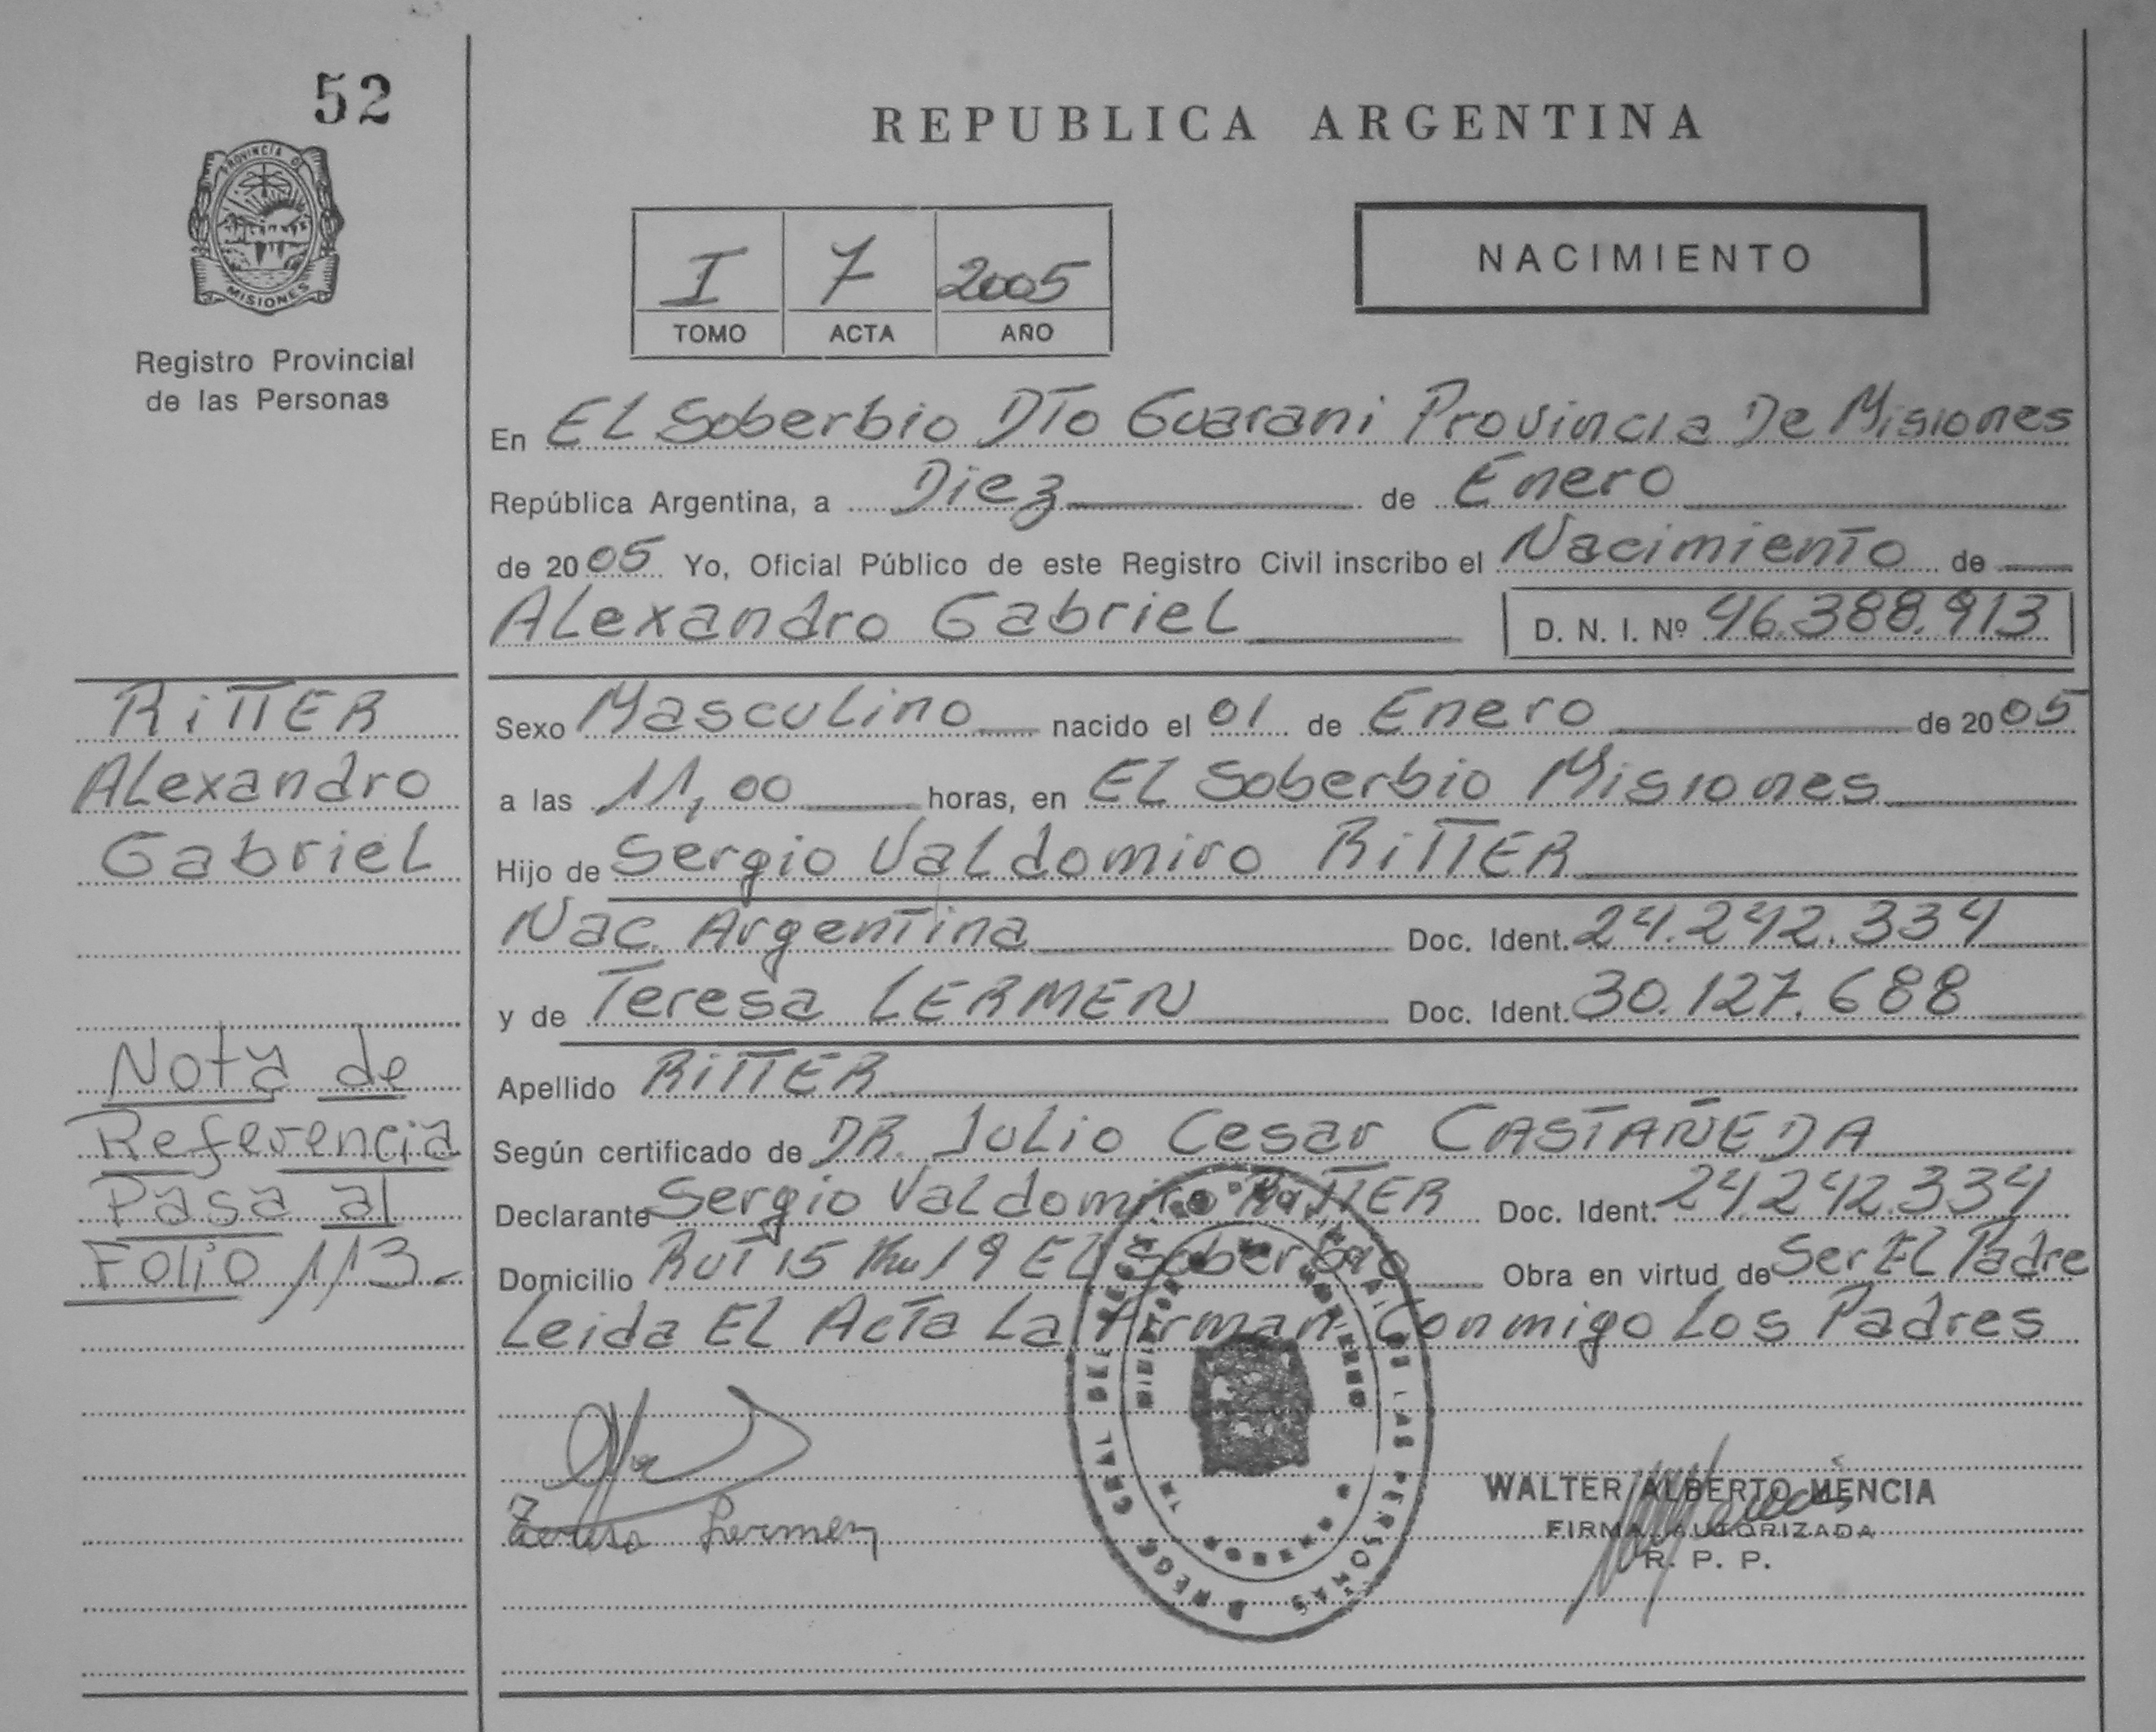 52
PROVINCIA D
MISIONES
Registro Provincial
de las Personas
RiTTER
Alexandro
Gabriel
Nota de
Referencia
Pasa al
Folio 113.-
REPUBLICA ARGENTINA
I 7 2005
TOMO ACTA AÑO
NACIMIENTO
En EL Soberbio DTo Guarani Provincia De Misiones
República Argentina, a Diez de Enero
de 2005 Yo, Oficial Público de este Registro Civil inscribo el Nacimiento de
Alexandro Gabriel D. N. I. Nº 46.388.913
Sexo Masculino nacido el 01 de Enero de 2005
a las 11,00 horas, en EL Soberbio Misiones
Hijo de Sergio Valdomiro RiTTER
Nac. Argentina Doc. Ident. 24.242.334
y de Teresa LERMEN Doc. Ident. 30.127.688
Apellido RiTTER
Según certificado de DR. Julio Cesar CASTAÑEDA
Declarante Sergio Valdomiro RiTTER Doc. Ident. 24.242.334
Domicilio RuT 15 Km 19 EL Soberbio Obra en virtud de Ser EL Padre
Leida EL Acta La Firman Conmigo Los Padres
DE LAS PERSONAS
Lermen
WALTER ALBERTO MENCIA
FIRMA AUTORIZADA
R. P. P.